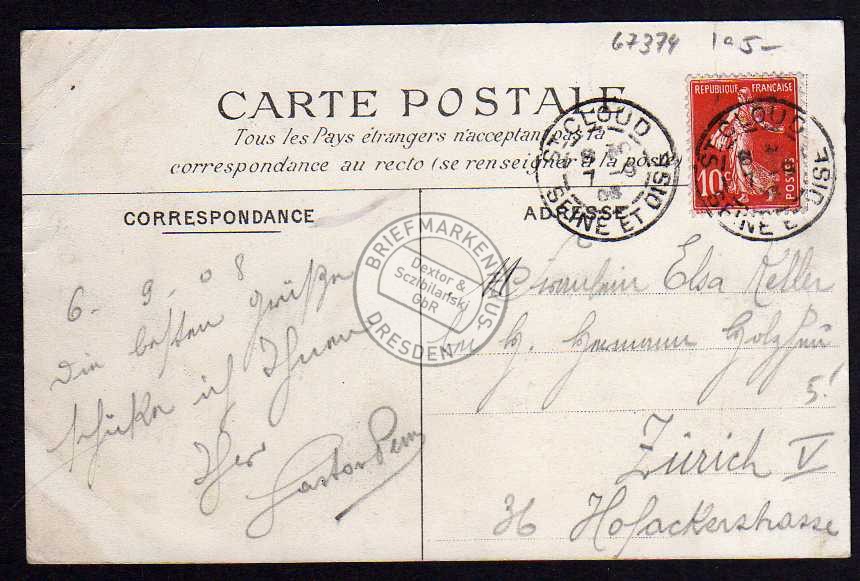 67374 1a5-
CARTE POSTALE
Tous les Pays étrangers n'acceptent pas la
correspondance au recto (se renseigner à la poste)
REPUBLIQUE FRANÇAISE
10c POSTES
ST CLOUD
SEINE ET OISE
ST CLOUD
SEINE ET OISE
CORRESPONDANCE
ADRESSE
BRIEFMARKENHAUS
Dextor &
Sczibilański
GbR
DRESDEN
6 - 9 - 08
Die besten Grüße
schicke ich Ihnen
Ihr
Gaston
Fräulein Elsa Keller
bei H. Hermann
Zürich V
36 Hofackerstrasse